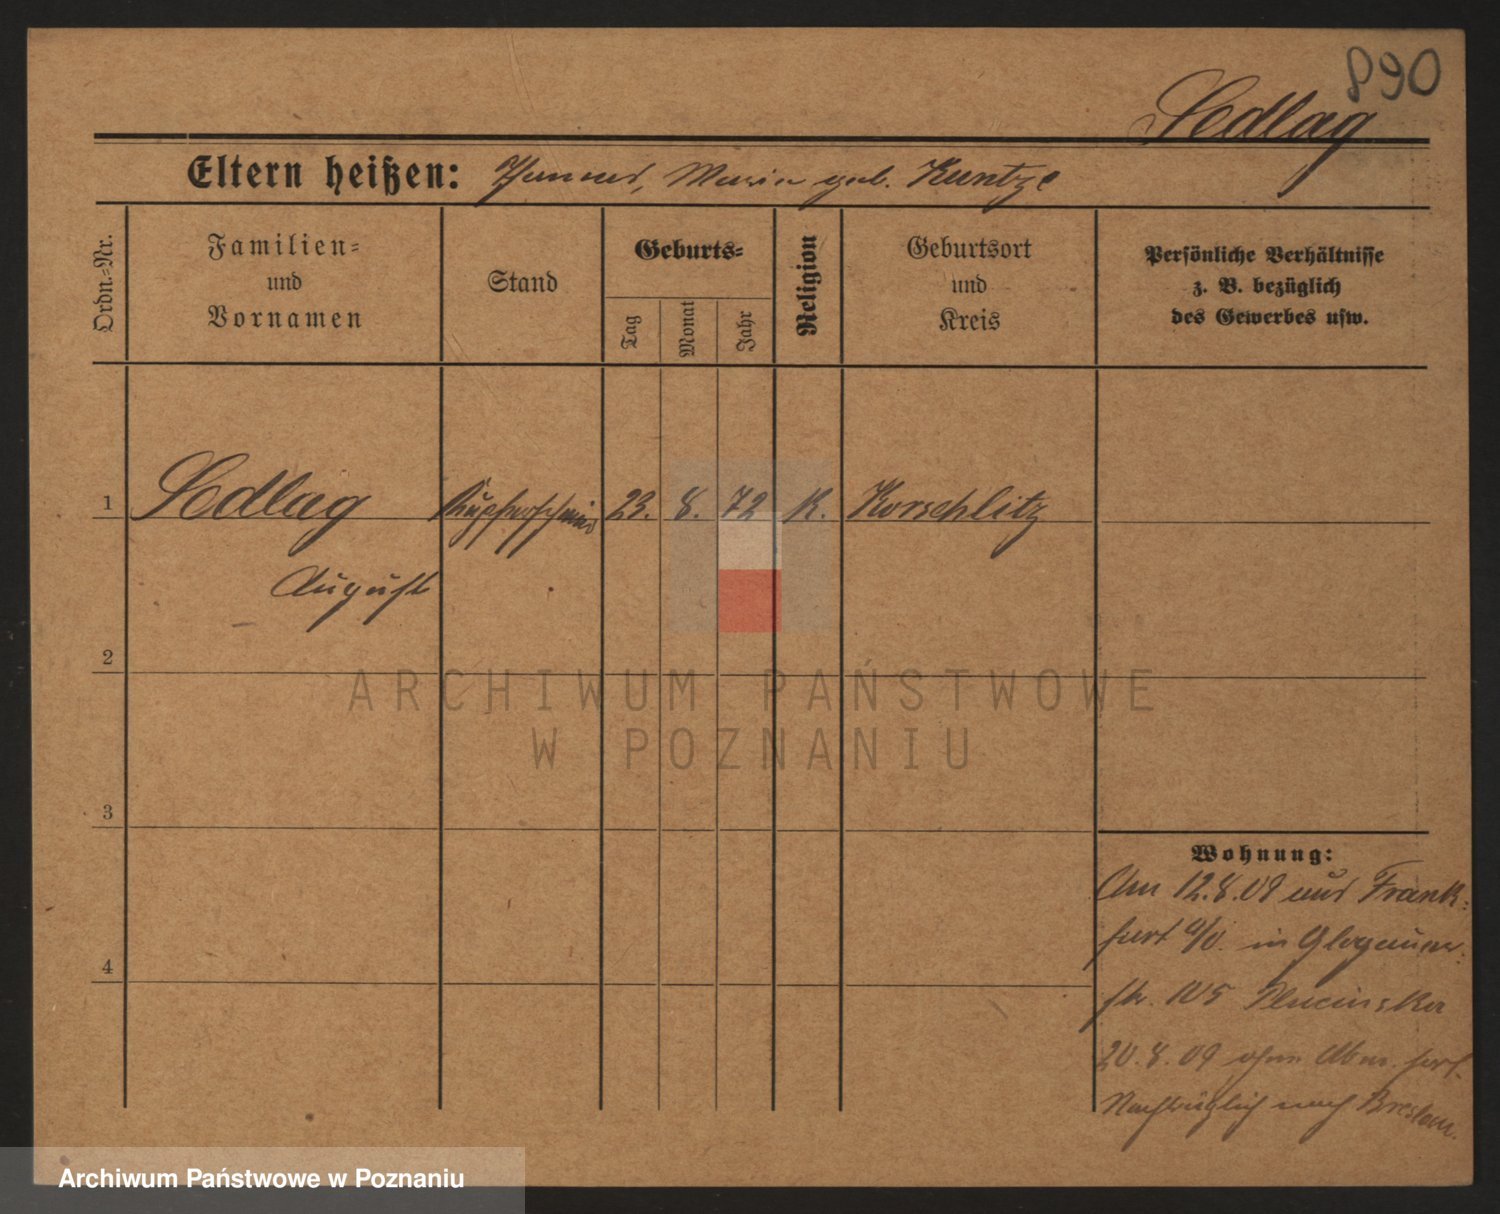 890
Sedlag
Eltern heißen: Maria geb. Kuntze
Ordn.-Nr.
Familien-
und
Vornamen
Stand
Geburts-
Tag
Monat
Jahr
Religion
Geburtsort
und
Kreis
Persönliche Verhältnisse
z. B. bezüglich
des Gewerbes usw.
1 Sedlag Kupferschmied 23. 8. 72 K. Korschlitz
August
2
3
4
Wohnung:
Am 12.8.09 aus Frank-
furt a/O. in Glogauer-
str. 105
20.8.09 ohne Abm. fort.
Nachträglich nach Breslau.
ARCHIWUM PAŃSTWOWE
W POZNANIU
Archiwum Państwowe w Poznaniu